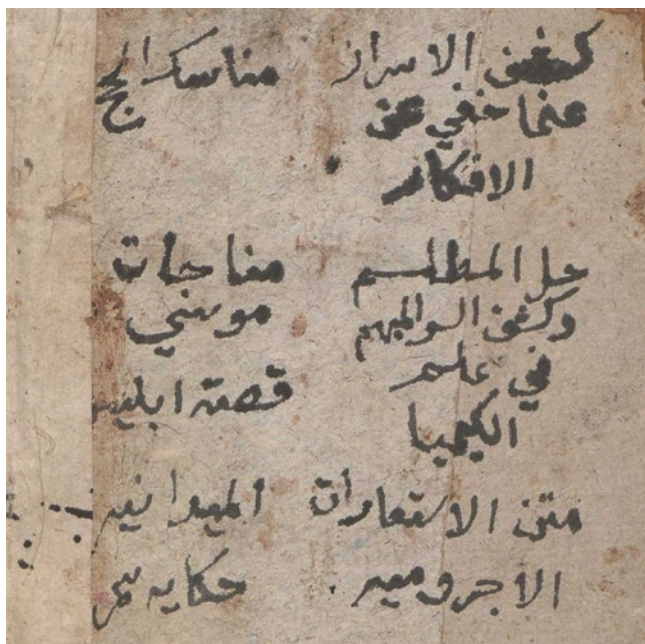 كشف الاسرار
عنما خفي عن
الافكار
حل المطلسم
وكشف السر المبهم
في علم
الكيميا
متن الاستعارات
الاجروميه
مناسك الحج
مناجات
موسي
قصة ابليس
حكاية